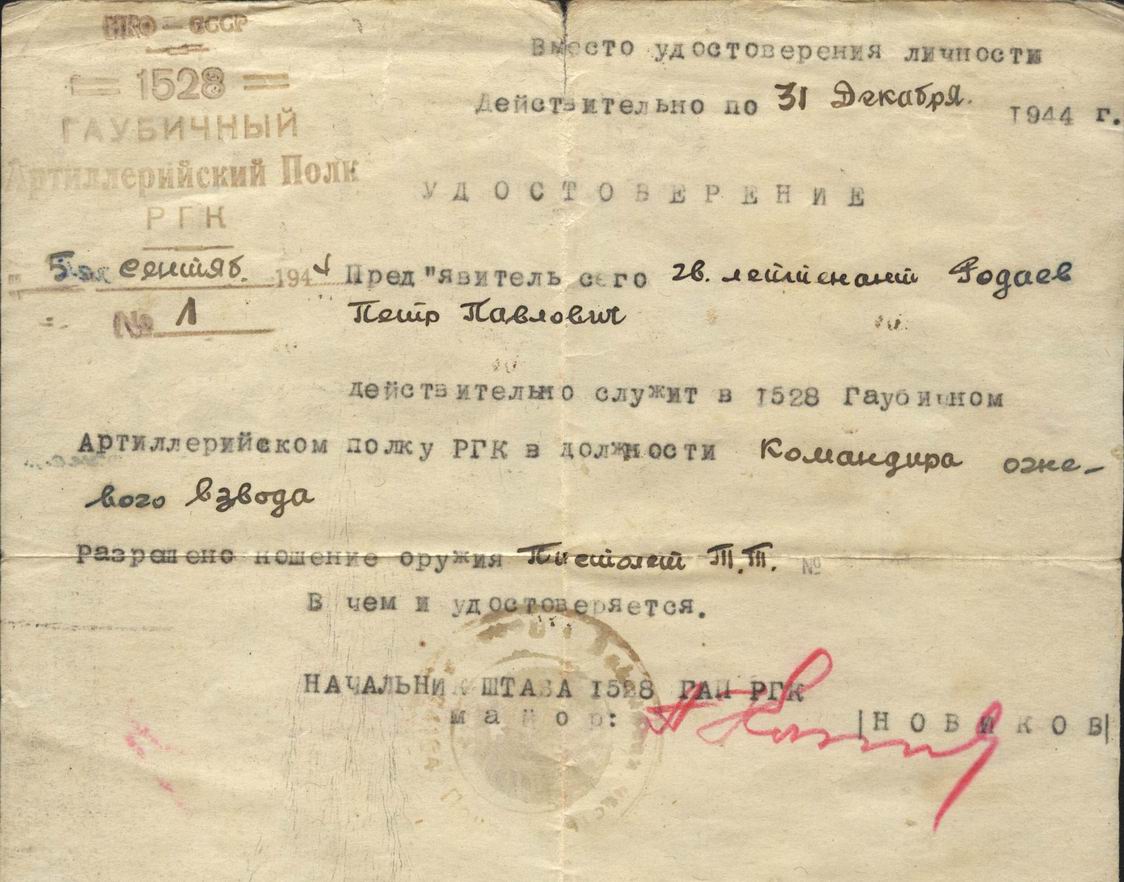 НКО — СССР
1528
ГАУБИЧНЫЙ
Артиллерийский Полк
РГК
5 сентяб. 1944
№ 1
Вместо удостоверения личности
Действительно по 31 Декабря 1944 г.
УДОСТОВЕРЕНИЕ
Пред"явитель сего гв. лейтенант Родаев
Петр Павлович
действительно служит в 1528 Гаубичном
Артиллерийском полку РГК в должности Командира огне-
вого взвода
Разрешено ношение оружия Пистолет Т.Т. №
В чем и удостоверяется.
НАЧАЛЬНИК ШТАБА 1528 ГАП РГК
майор: |НОВИКОВ|